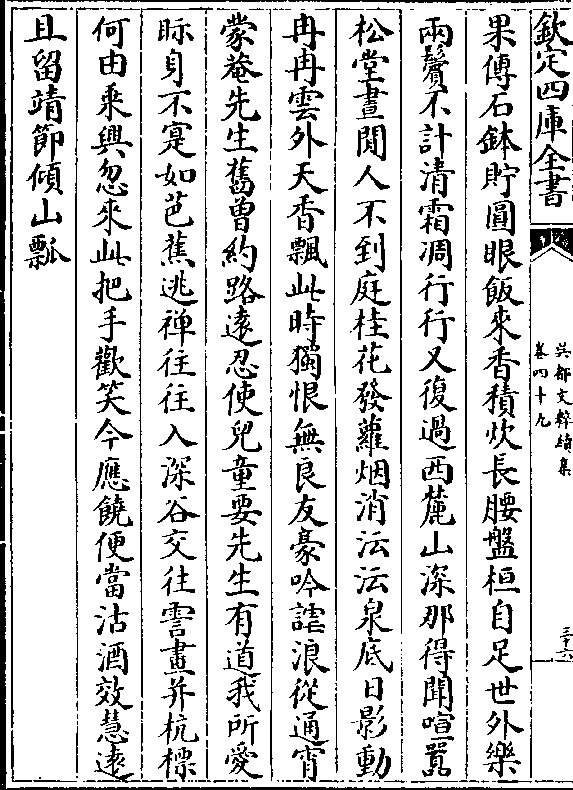 欽定四庫全書
吳都文粹續集
卷四十九
三十六
果傅石鉢貯圓眼飯來香積炊長腰盤桓自足世外樂
兩鬢不計清霜凋行行又復過西麓山深那得聞喧囂
松堂晝閒人不到庭桂花發蘿烟消沄沄泉底日影動
冉冉雲外天香飄此時獨恨無良友豪吟謔浪從通宵
蒙菴先生舊曽約路遠忍使兒童要先生有道我所愛
眎身不寔如芭蕉逃禅徃徃入深谷交徃雲畫并杭標
何由乘興忽來此把手歡笑今應饒便當沽酒效慧遠
且留靖節傾山瓢